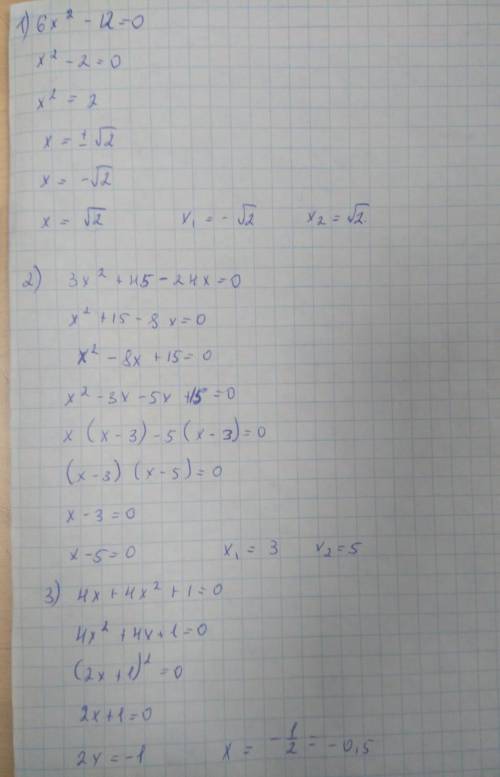 1) 6x² - 12 = 0
x² - 2 = 0
x² = 2
x = ± √2
x = -√2
x = √2 x₁ = - √2 x₂ = √2
2) 3x² + 45 - 24x = 0
x² + 15 - 8x = 0
x² - 8x + 15 = 0
x² - 3x - 5x + 15 = 0
x (x - 3) - 5 (x - 3) = 0
(x - 3) (x - 5) = 0
x - 3 = 0
x - 5 = 0 x₁ = 3 x₂ = 5
3) 4x + 4x² + 1 = 0
4x² + 4x + 1 = 0
(2x + 1)² = 0
2x + 1 = 0
2x = -1 x = -1/2 = -0,5